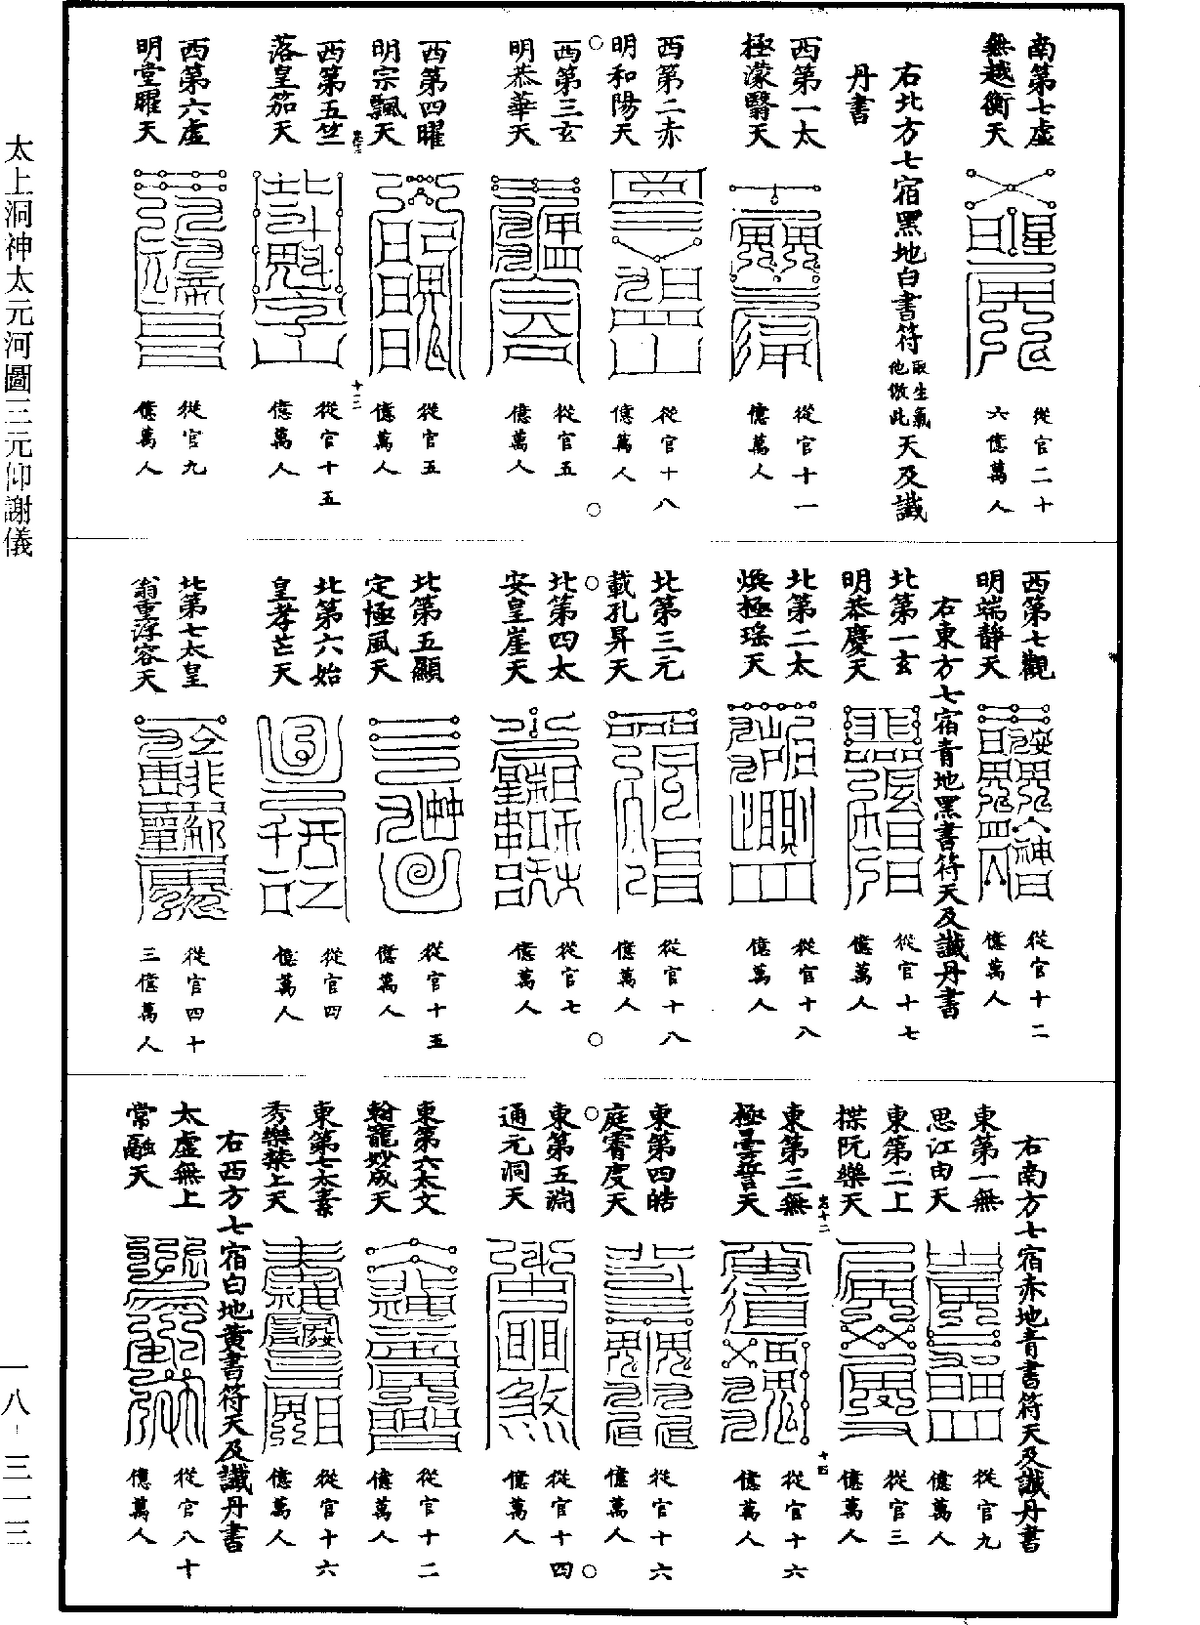 南第七虛
無越衡天
從官二十
六億萬人
右北方七宿黑地白書符取生氣他倣此天及讖
丹書
西第一太
極濛翳天
從官十一
億萬人
西第二赤
明和陽天
從官十八
億萬人
西第三玄
明恭華天
從官五
億萬人
西第四曜
明宗飄天
從官五
億萬人
十三
西第五竺
落皇笳天
從官十五
億萬人
西第六虛
明堂曜天
從官九
億萬人
西第七觀
明端靜天
從官十二
億萬人
右東方七宿青地黑書符天及讖丹書
北第一玄
明恭慶天
從官十七
億萬人
北第二太
煥極瑤天
從官十八
億萬人
北第三元
載孔昇天
從官十八
億萬人
北第四太
安皇崖天
從官七
億萬人
北第五顯
定極風天
從官十五
億萬人
北第六始
皇孝芒天
從官四
億萬人
北第七太皇
翁重浮容天
從官四十
三億萬人
右南方七宿赤地青書符天及讖丹書
東第一無
思江由天
從官九
億萬人
東第二上
揲阮樂天
從官三
億萬人
十四
東第三無
極曇誓天
從官十六
億萬人
東第四皓
庭霄度天
從官十六
億萬人
東第五淵
通元洞天
從官十四
億萬人
東第六太文
翰寵妙成天
從官十二
億萬人
東第七太素
秀樂禁上天
從官十六
億萬人
右西方七宿白地黃書符天及讖丹書
太虛無上
常融天
從官八十
億萬人
太上洞神太元河圖三元仰謝儀
一八-三一三